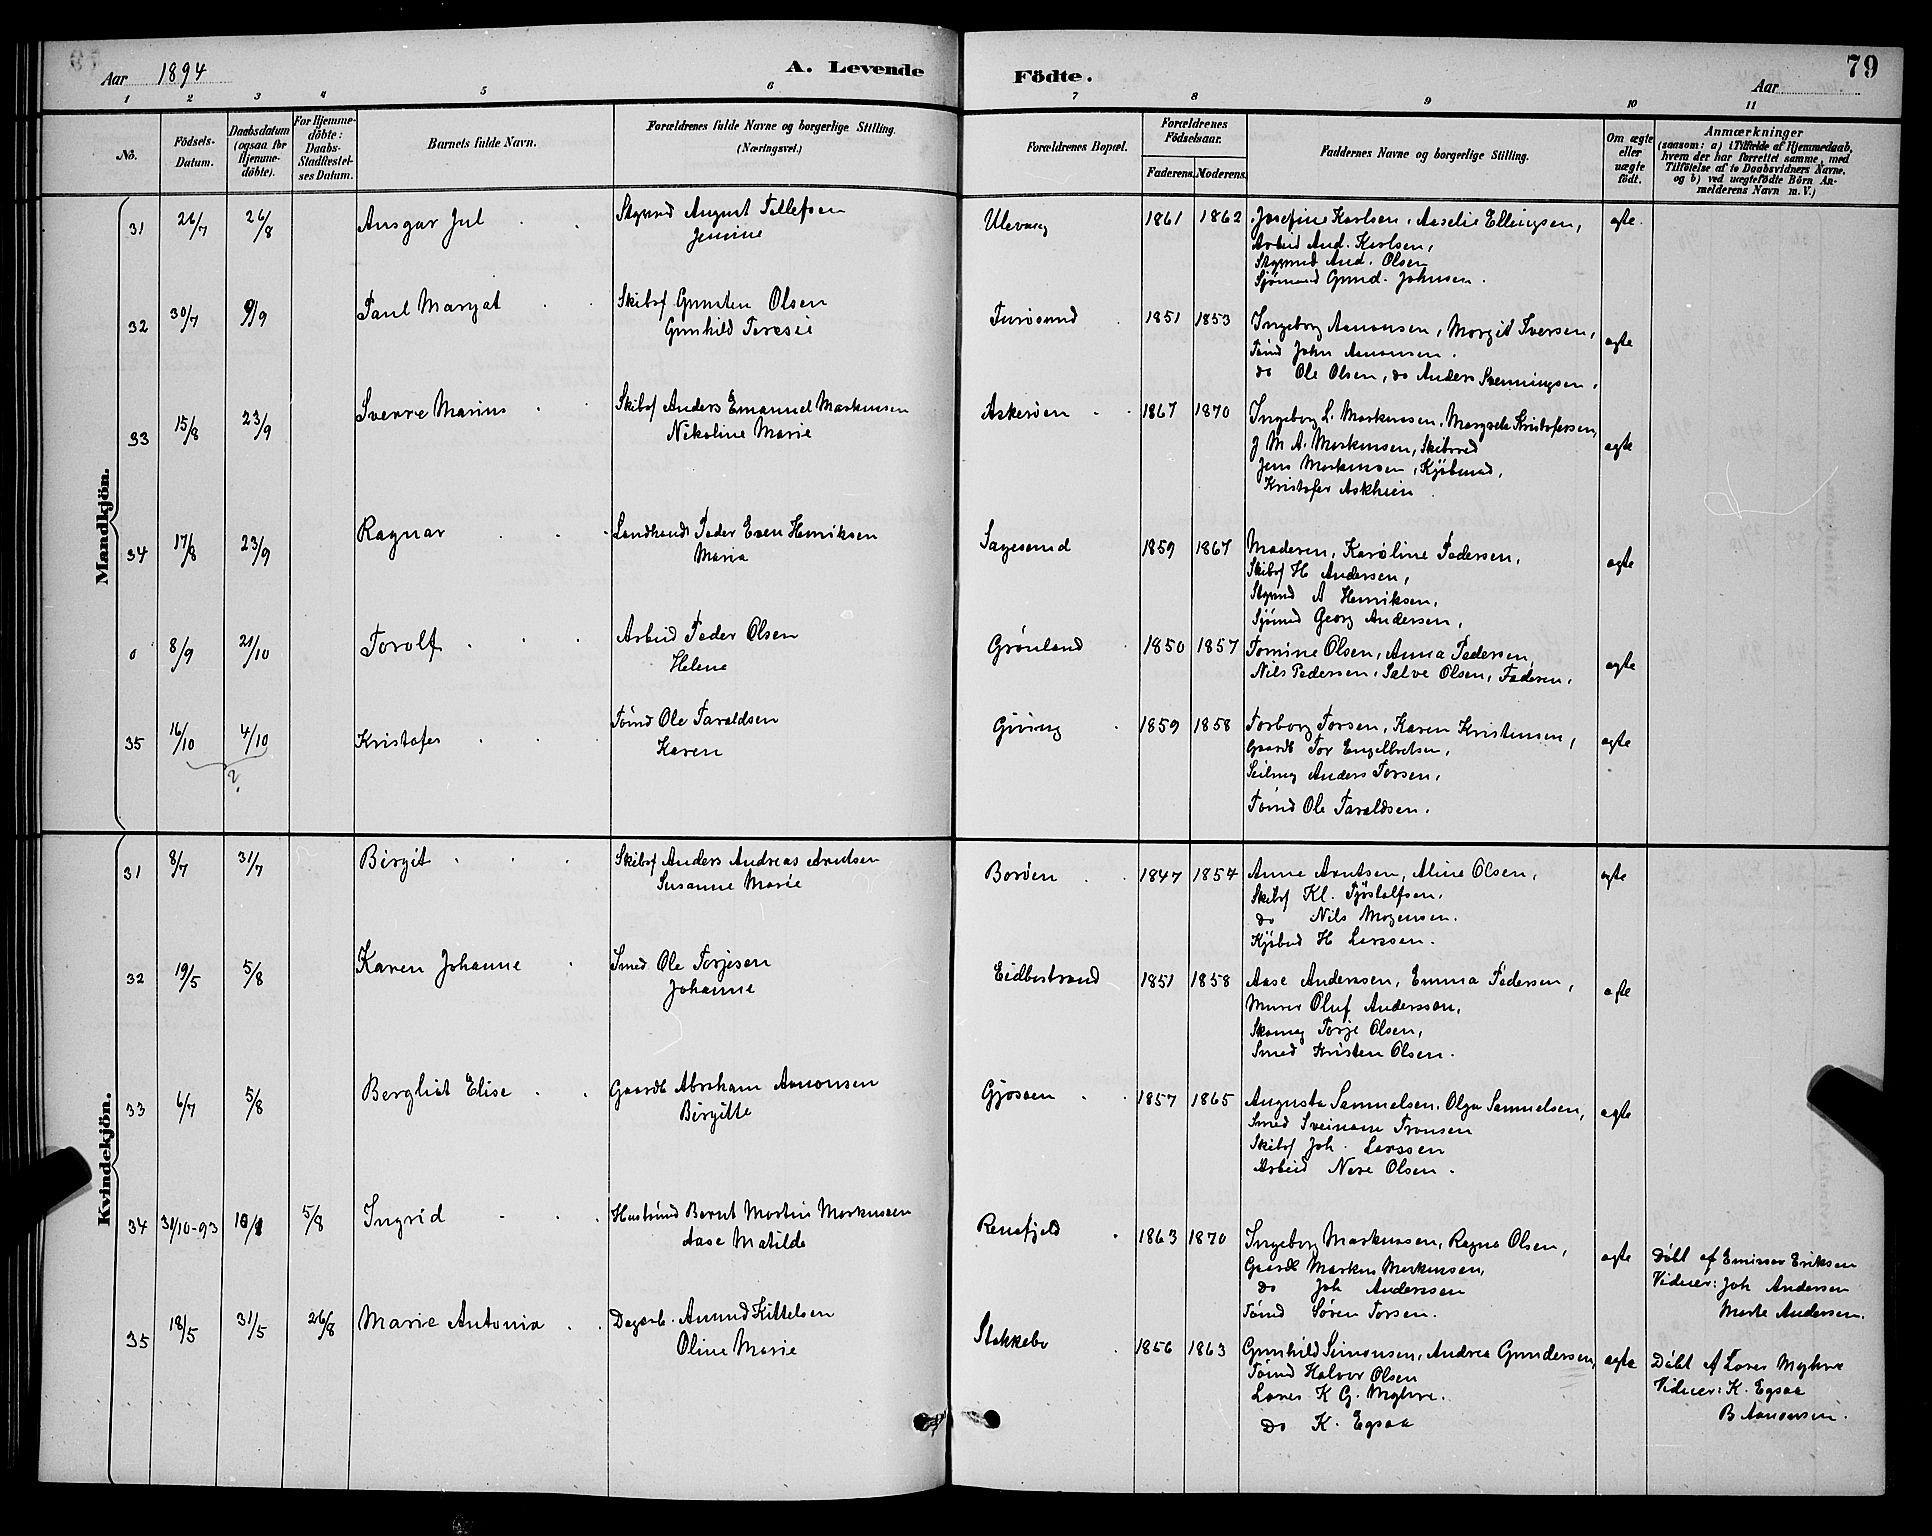 79
Aar 1894
A. Levende
Födte.
Aar
1 2 3 4 5 6 7 8 9 10 11
No.
Födsels-Datum.
Daabsdatum (ogsaa for Hjemmedöbte).
For Hjemmedöbte: Daabs-Stadfestelses Datum.
Barnets fulde Navn.
Forældrenes fulde Navne og borgerlige Stilling.
(Næringsvei.)
Forældrenes Bopæl.
Forældrenes Födselsaar.
Faderens. Moderens.
Faddernes Navne og borgerlige Stilling.
Om ægte eller uægte födt.
Anmærkninger
(saasom: a) i Tilfælde af Hjemmedaab, hvem der har forrettet samme, med Tilföielse af to Daabsvidners Navne. og b) ved uægtefödte Börn Anmelderens Navn m. V.)
Mandkjön.
31 26/7 26/8 Ansgar Jul Stgmnd August Tellefsen Ulevaag 1861 1862 Josefine Karlsen, Aaselie Ellingsen, ægte
Jensine
Arbeid And. Karlsen,
Stgmnd And. Olsen
Sjømand Gund. Johnsen.
32 30/7 9/9 Paul Margat Skibsf Gunsten Olsen Furøsund 1851 1853 Ingeborg Aanonsen, Margit Iversen, ægte
Gunhild Teresie
Tømd John Aanonsen.
do Ole Olsen, do Anders Svenningsen.
33 15/8 23/9 Sverre Marius Skibsf Anders Emanuel Markussen Askerøen 1867 1870 Ingeborg L. Markussen, Margrete Kristofersen, ægte
Nikoline Marie
J M A. Markussen, Skibsred
Jens Markussen, Kjøbmd,
Kristofer Askheim
34 17/8 23/9 Ragnar Landhand Peder Even Henriksen Sagesund 1859 1867 Moderen, Karoline Pedersen, ægte
Maria
Skibsf H Andersen,
Stgmnd A Henriksen,
Sjømd Georg Andersen,
0 8/9 21/10 Torolf Arbeid Peder Olsen Grønland 1850 1857 Tomine Olsen, Anna Pedersen, ægte
Helene
Nils Pedersen, Salve Olsen, Faderen.
35 16/10 4/10 Kristofer Tømd Ole Taraldsen Gjeving 1859 1858 Torborg Torsen, Karen Kristensen, ægte
?
Karen
Gaardb Tor Engelbretsen,
Seilmag Anders Torsen,
Tømd Ole Taraldsen.
Kvindekjön.
31 8/7 31/7 Birgit Skibsf Anders Andreas Arntsen Borøen 1847 1854 Anne Arntsen, Aline Olsen, ægte
Susanne Marie
Skibsf Kl. Tjøstolfsen,
do Nils Mogensen.
Kjøbmd H Larssen.
32 19/5 5/8 Karen Johanne Smed Ole Torjesen Eidbostrand 1851 1858 Aase Anderssen, Emma Pedersen, ægte
Johanne
Murer Oluf Anderssen,
Skomag Torje Olsen,
Smed Kristen Olsen.
33 6/7 5/8 Bergliot Elise Gaardb Abraham Aanonsen Gjøsøen 1857 1865 Augusta Samuelsen, Olga Samuelsen, ægte
Birgitte
Smed Sveinom Tronsen
Skibsf Joh. Larssen
Arbeid Nere Olsen.
34 31/10-93 5/8 Ingrid Husmand Bernt Martin Markussen Rensfjeld 1863 1870 Ingeborg Markussen, Ragna Olsen, ægte Døbt af Emissær Eriksen
Aase Matilde
Gaardb Markus Markussen,
do Joh Anderssen
Tømd Søren Torsen.
Vidner: Joh Andersen
Marte Andersen.
35 18/5 31/5 26/8 Marie Antonia Dagarb. Anund Kittelsen Stokkebo 1856 1863 Gunhild Simonsen, Andrea Gundersen, ægte Døbt af Lærer Myhre
Oline Marie
Tømd Halvor Olsen
Lærer K G. Myhre.
do K. Egsaa
Vidner: K. Egsaa
B Aanonsen.